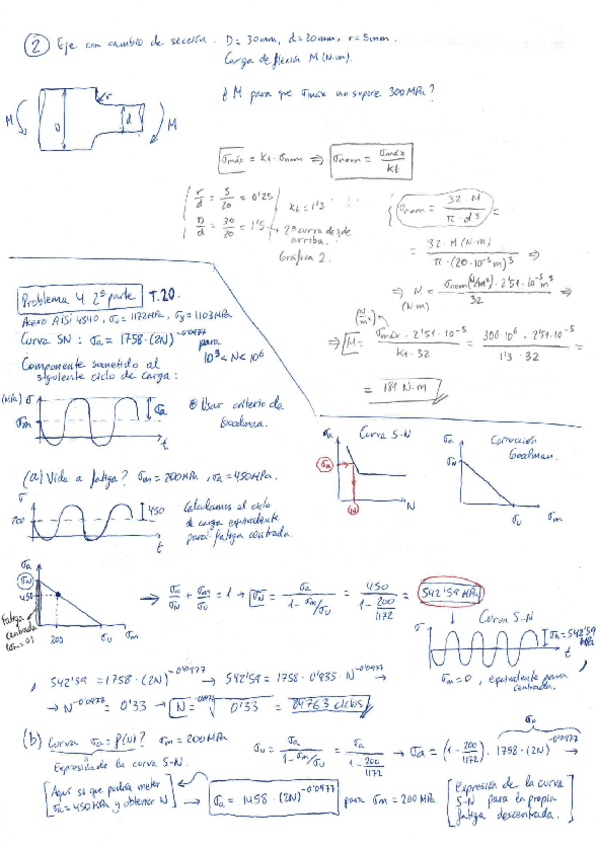 ② Eje con cambio de sección. D=30mm, d=20mm, r=5mm.
Carga de flexión M(N·m).
¿M para que σmáx no supere 300MPa?
M D r d M
σmáx = Kt·σnom ⇒ σnom = σmáx/Kt
r/d = 5/20 = 0'25
D/d = 30/20 = 1'5
Kt = 1'3
2ª curva desde arriba.
Gráfica 2.
σnom = 32·M/(π·d³) =
= 32·M(N·m)/(π·(20·10⁻³m)³ ⇒
⇒ M (N·m) = σnom(N/m²)·2'51·10⁻⁵m³/32
⇒ M = σmáx(N/m²)·2'51·10⁻⁵/(Kt·32) = 300·10⁶·2'51·10⁻⁵/(1'3·32) =
= 181 N·m
Problema 4 2ª parte T.20.
Acero AISI 4340, σu = 1172MPa, σy = 1103MPa
Curva SN: σa = 1758·(2N)^-0'0977 para 10³<N<10⁶
Componente sometido al
siguiente ciclo de carga:
(MPa) σ σm σa t
⊛ Usar criterio de
Goodman.
(a) Vida a fatiga? σm = 200MPa, σa = 450MPa.
σ 200 450 t
Calculamos el ciclo
de carga equivalente
para fatiga centrada.
σa Curva S-N σa N N
σa Corrección Goodman. σN σu σm
σa σN 450 200 σu σm
Fatiga centrada (σm=0)
→ σa/σN + σm/σu = 1 → σN = σa/(1-σm/σu) = 450/(1-200/1172) = 542'59 MPa
Curva S-N
σ σa=542'59 MPa t
σm=0, equivalente para
centrada.
542'59 = 1758·(2N)^-0'0977 → 542'59 = 1758·0'935·N^-0'0977 →
→ N^-0'0977 = 0'33 → N = ^-0'0977√0'33 = 84763 ciclos
(b) Curva σa = f(N)? σm = 200MPa
Expresión de la curva S-N.
σN = σa/(1-σm/σu) = σa/(1-200/1172) → σa = (1-200/1172)·1758·(2N)^-0'0977 →
σN
[Aquí sí que podría meter
σa=450MPa y obtener N]
→ σa = 1458·(2N)^-0'0977 para σm = 200MPa
[Expresión de la curva
S-N para la propia
fatiga descentrada.]